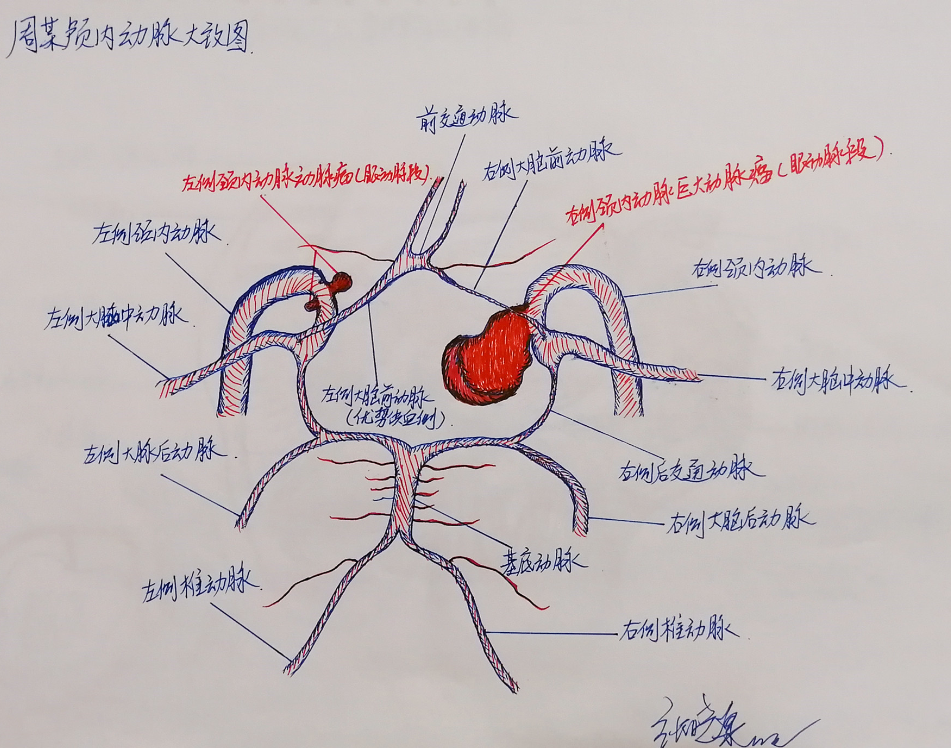 周某颅内动脉大致图.
前交通动脉
右侧大脑前动脉
左侧颈内动脉动脉瘤(眼动脉段).
右侧颈内动脉巨大动脉瘤(眼动脉段).
左侧颈内动脉.
右侧颈内动脉.
左侧大脑中动脉.
右侧大脑中动脉.
左侧大脑前动脉
(优势供血侧).
左侧大脉后动脉.
右侧后交通动脉
右侧大脑后动脉
基底动脉
左侧椎动脉.
右侧椎动脉.